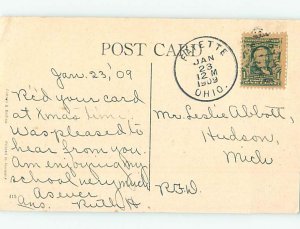 POST CARD
FAYETTE
JAN
23
12 M
1909
OHIO.
Jan. 23, '09
Rc'd your card
at Xmas time,
Was pleased to
hear from you
Am enjoying my
school very much
As ever
Ans. Ruth H.
Mr. Leslie Abbott,
Hudson,
Mich
R.F.D.